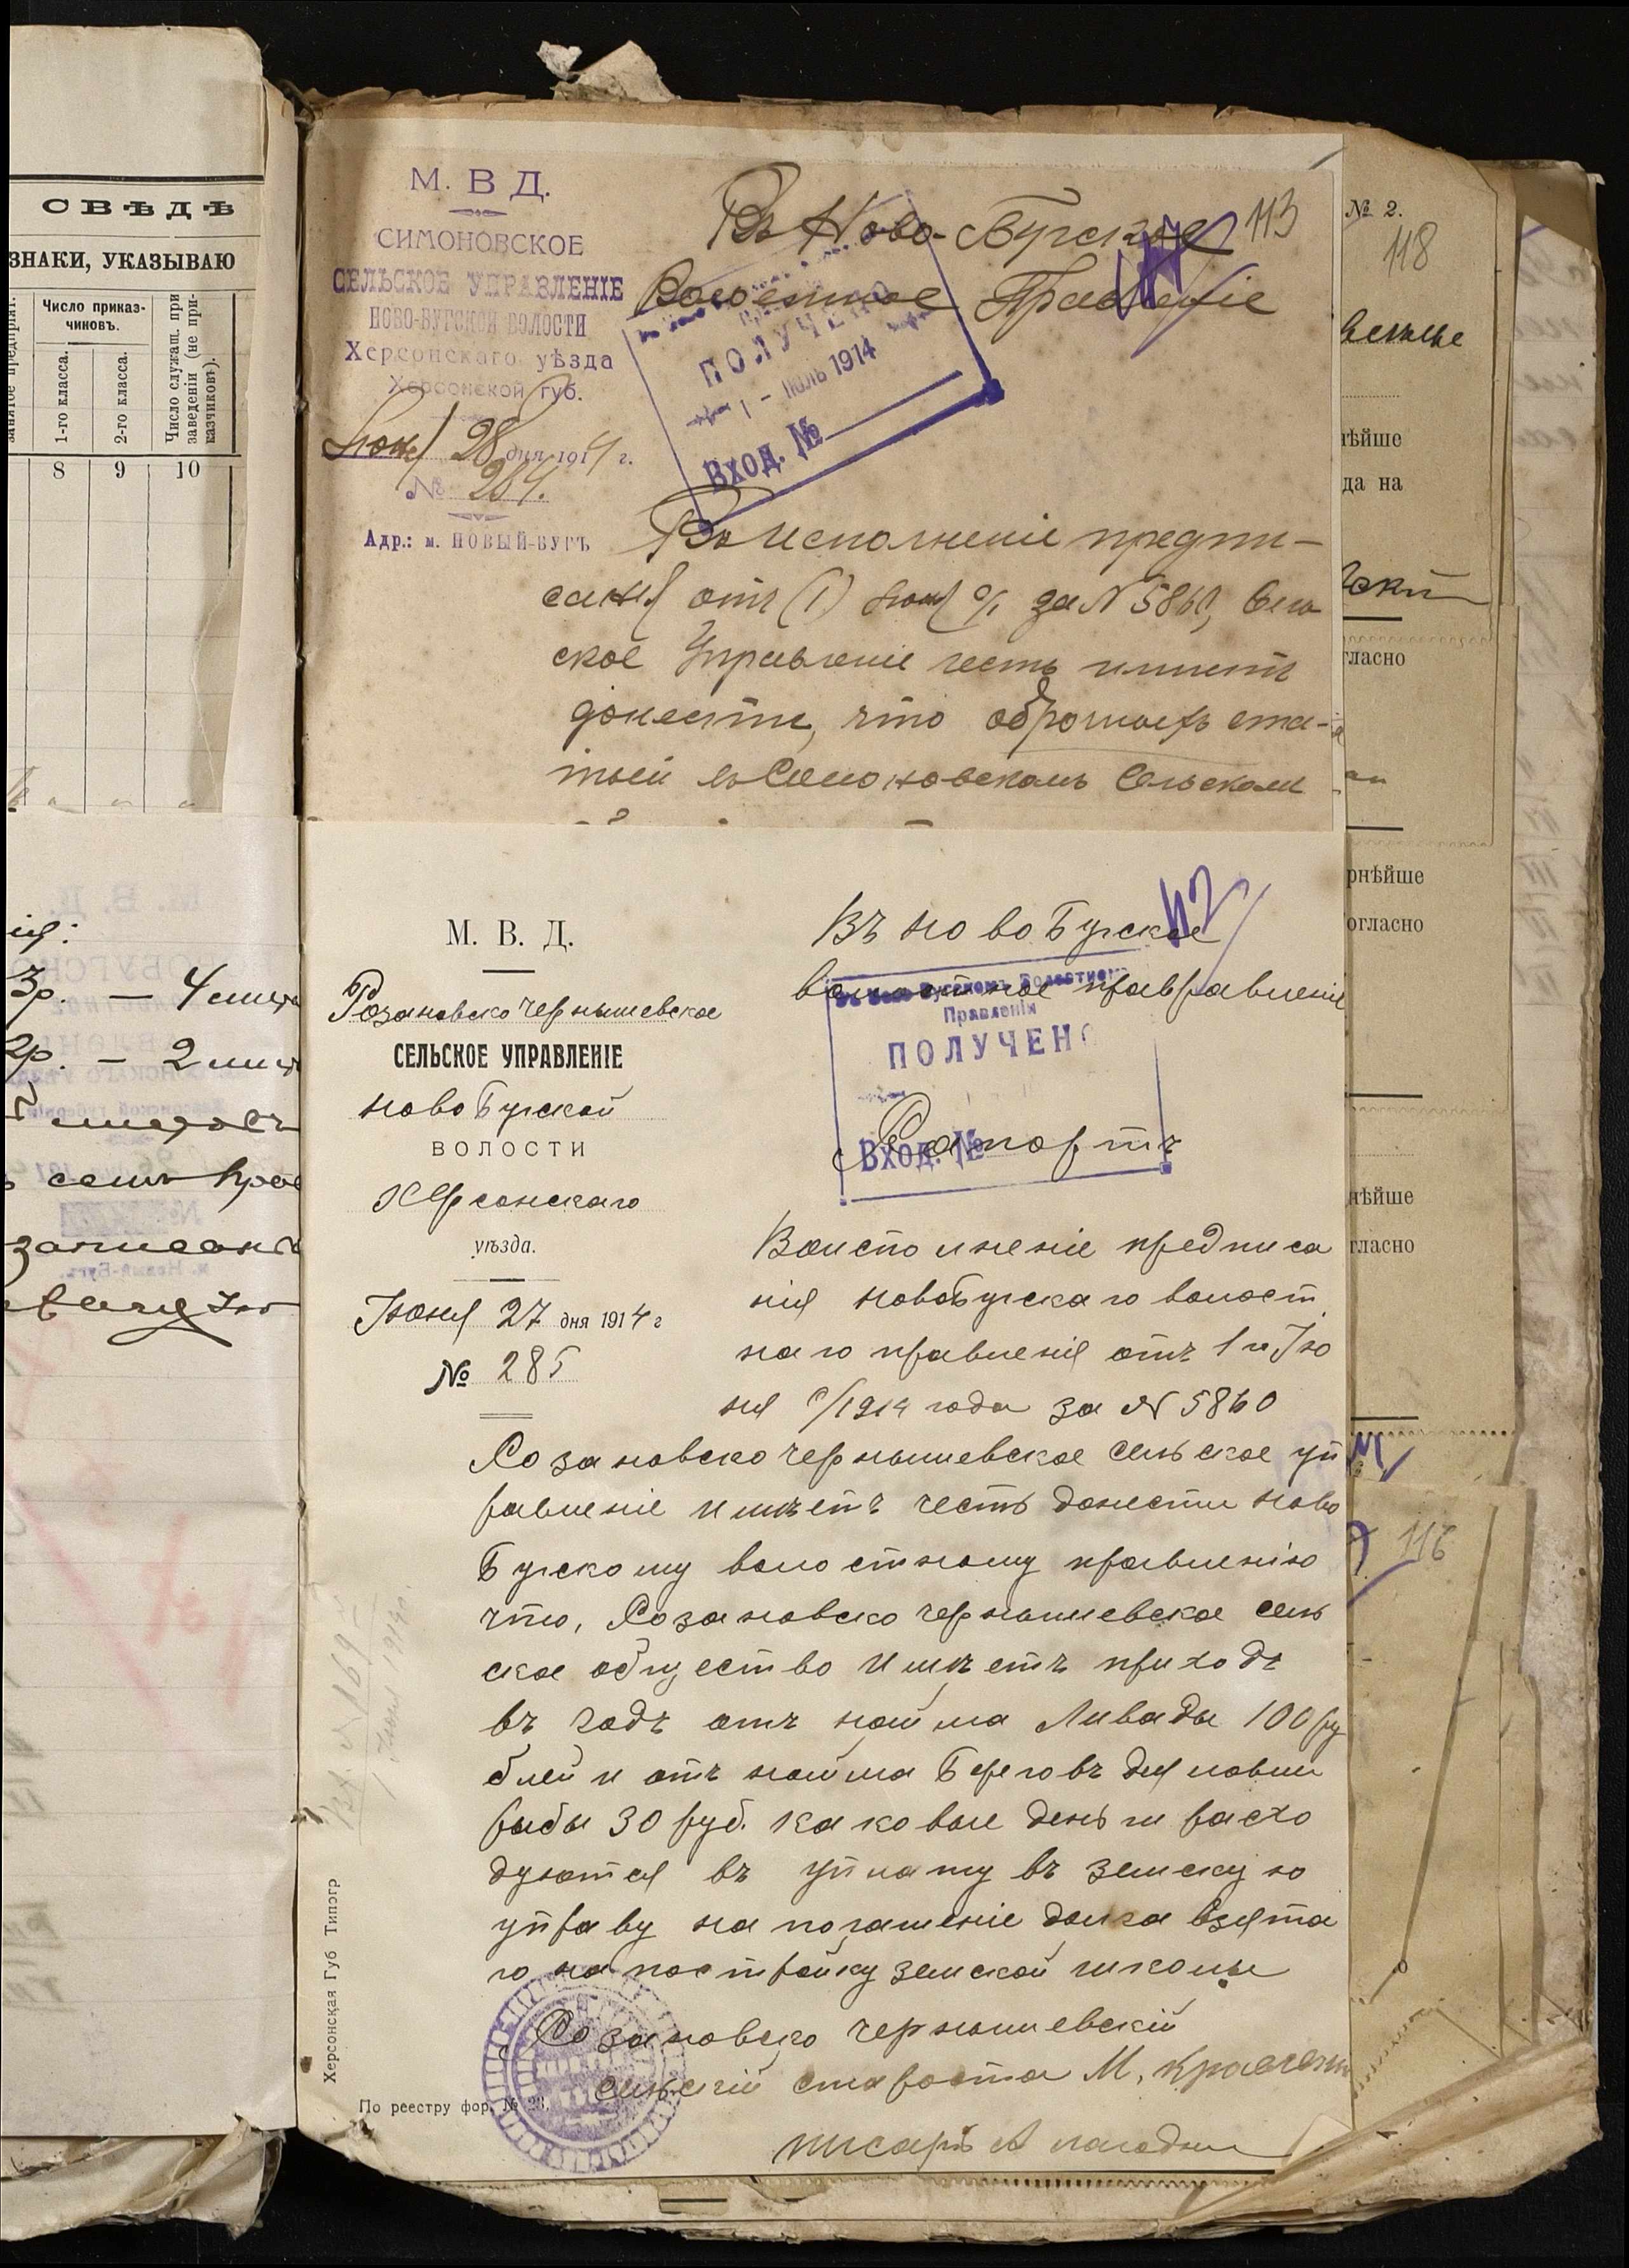 СВѢДѢ
ЗНАКИ, УКАЗЫВАЮ
Число приказ-
чиковъ.
1-го класса.
2-го класса.
Число служащ. при
заведеніи (не при-
казчиковъ).
8 9 10
3р. — 4
2р. — 2
М. В. Д.
СИМОНОВСКОЕ
СЕЛЬСКОЕ УПРАВЛЕНІЕ
НОВО-БУГСКОЙ ВОЛОСТИ
Херсонскаго уѣзда
Херсонской губ.
28 дня 1914 г.
№ 284.
Адр.: м. НОВЫЙ-БУГЪ
Въ Ново-Бугское 113
Волостное Правленіе
ПОЛУЧЕНО
1 - ІЮЛЬ 1914
Вход. №
Во исполненіе предпи-
санія отъ (1) Іюня с/г за N 5860, Сель
ское Управленіе честь имеетъ
донести, что оброчныхъ ста-
тьей въ Симоновскомъ Сельскомъ
М. В. Д.
Розановско Чернышевское
СЕЛЬСКОЕ УПРАВЛЕНІЕ
Ново Бугской
ВОЛОСТИ
Херсонскаго
уѣзда.
Іюня 27 дня 1914 г
№ 285
112
Въ Ново Бугское
волостное правравленіе
Въ Ново-Бугскомъ Волостном
Правленіи
ПОЛУЧЕНО
Вход. №
Рапортъ
Воисполненіе предписа
нія НовоБугскаго волост
наго правленія отъ 1 го Ію
ня с/1914 года за N 5860
Розановско чернышевское сельское уп
равленіе имѣетъ честь донести Ново
Бугскому волостному правленію
что, Розановско чернышевское сель
ское общество имѣетъ приходъ
въ годъ отъ найма Ливады 100 ру
блей и отъ найма Береговъ для ловли
рыбы 30 руб. каковые деньги расхо
дуются въ уплату въ земскую
управу на погашеніе долга взята
го на постройку земской школы
Розановско чернышевскій
сельскій староста М.
писарь
По реестру фор. № 23.
Херсонская Губ Типогр
№ 2.
118
да на
гласно
рнѣйше
огласно
нѣйше
гласно
116